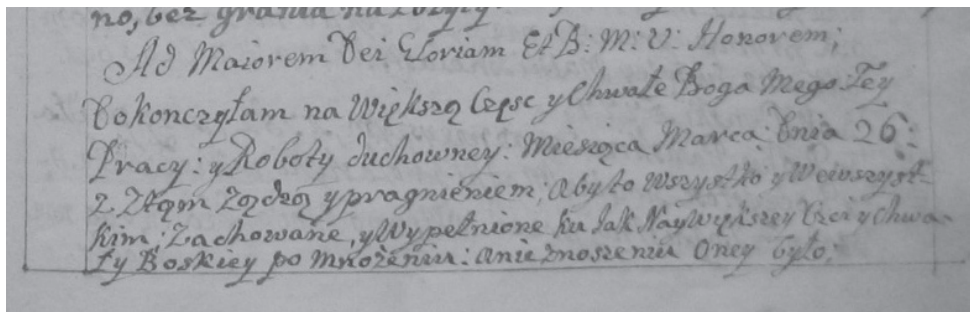 no, bez grania na
Ad Maiorem Dei Gloriam Et B: M: V: Honorem;
Dokonczyłam na Większą Częsc y Chwałe Boga Mego Tey
Pracy: y Roboty duchowney: Miesiąca Marca: Dnia 26:
z Ządzą y pragnieniem; aby to wszystko y We wszyst-
kim; Zachowane, y Wypełnione ku Jak Naywiększey Czci y Chwa-
ły Boskiey po mnożeniu: a nie znoszeniu Oney było;